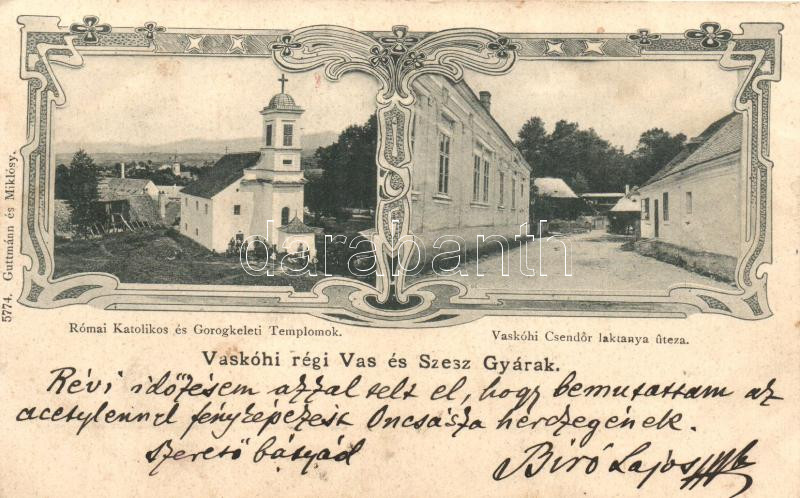 Római Katolikos és Gorogkeleti Templomok.
Vaskóhi Csendőr laktanya úteza.
Vaskóhi régi Vas és Szesz Gyárak.
Révi időzésem azzal telt el, hogy bemutattam az
acetylennel fényképezést Oncsásza herczegének.
Szerető bátyád
Biró Lajos
5774. Guttmánn és Miklósy.
darabanth